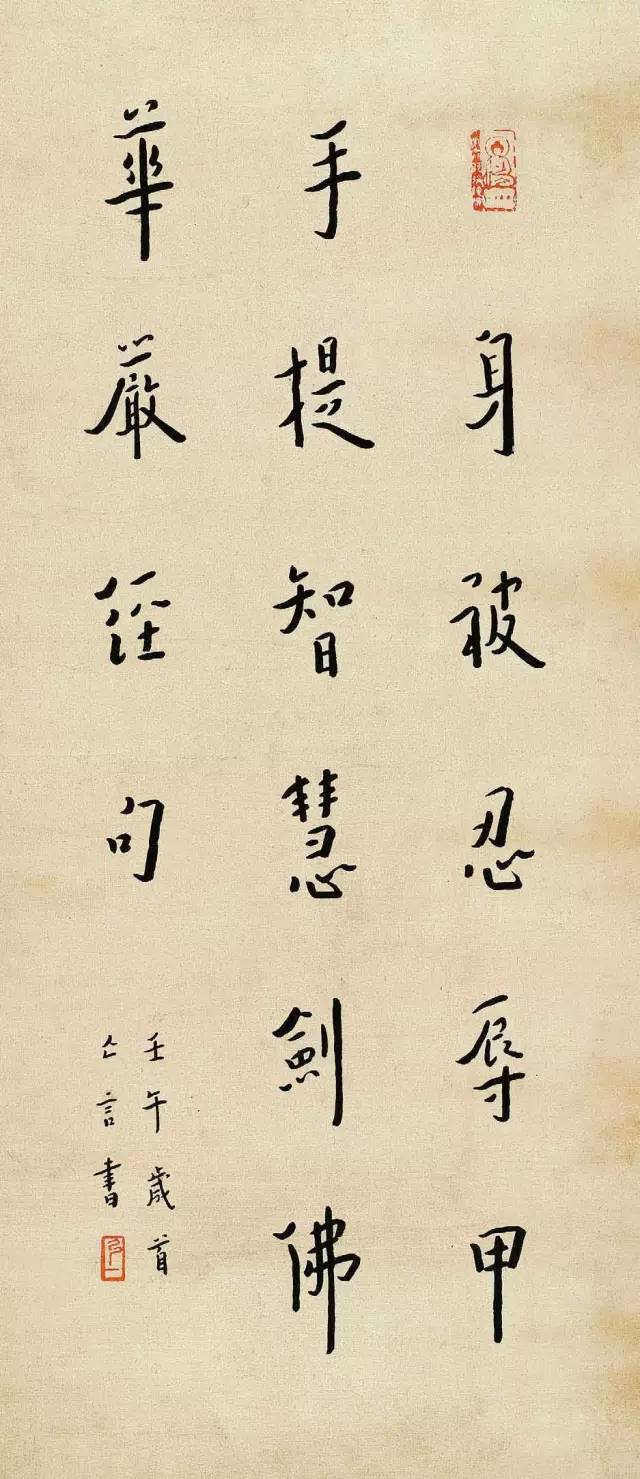 身被忍辱甲
手提智慧劍佛
華嚴經句
壬午歲首
亾言書